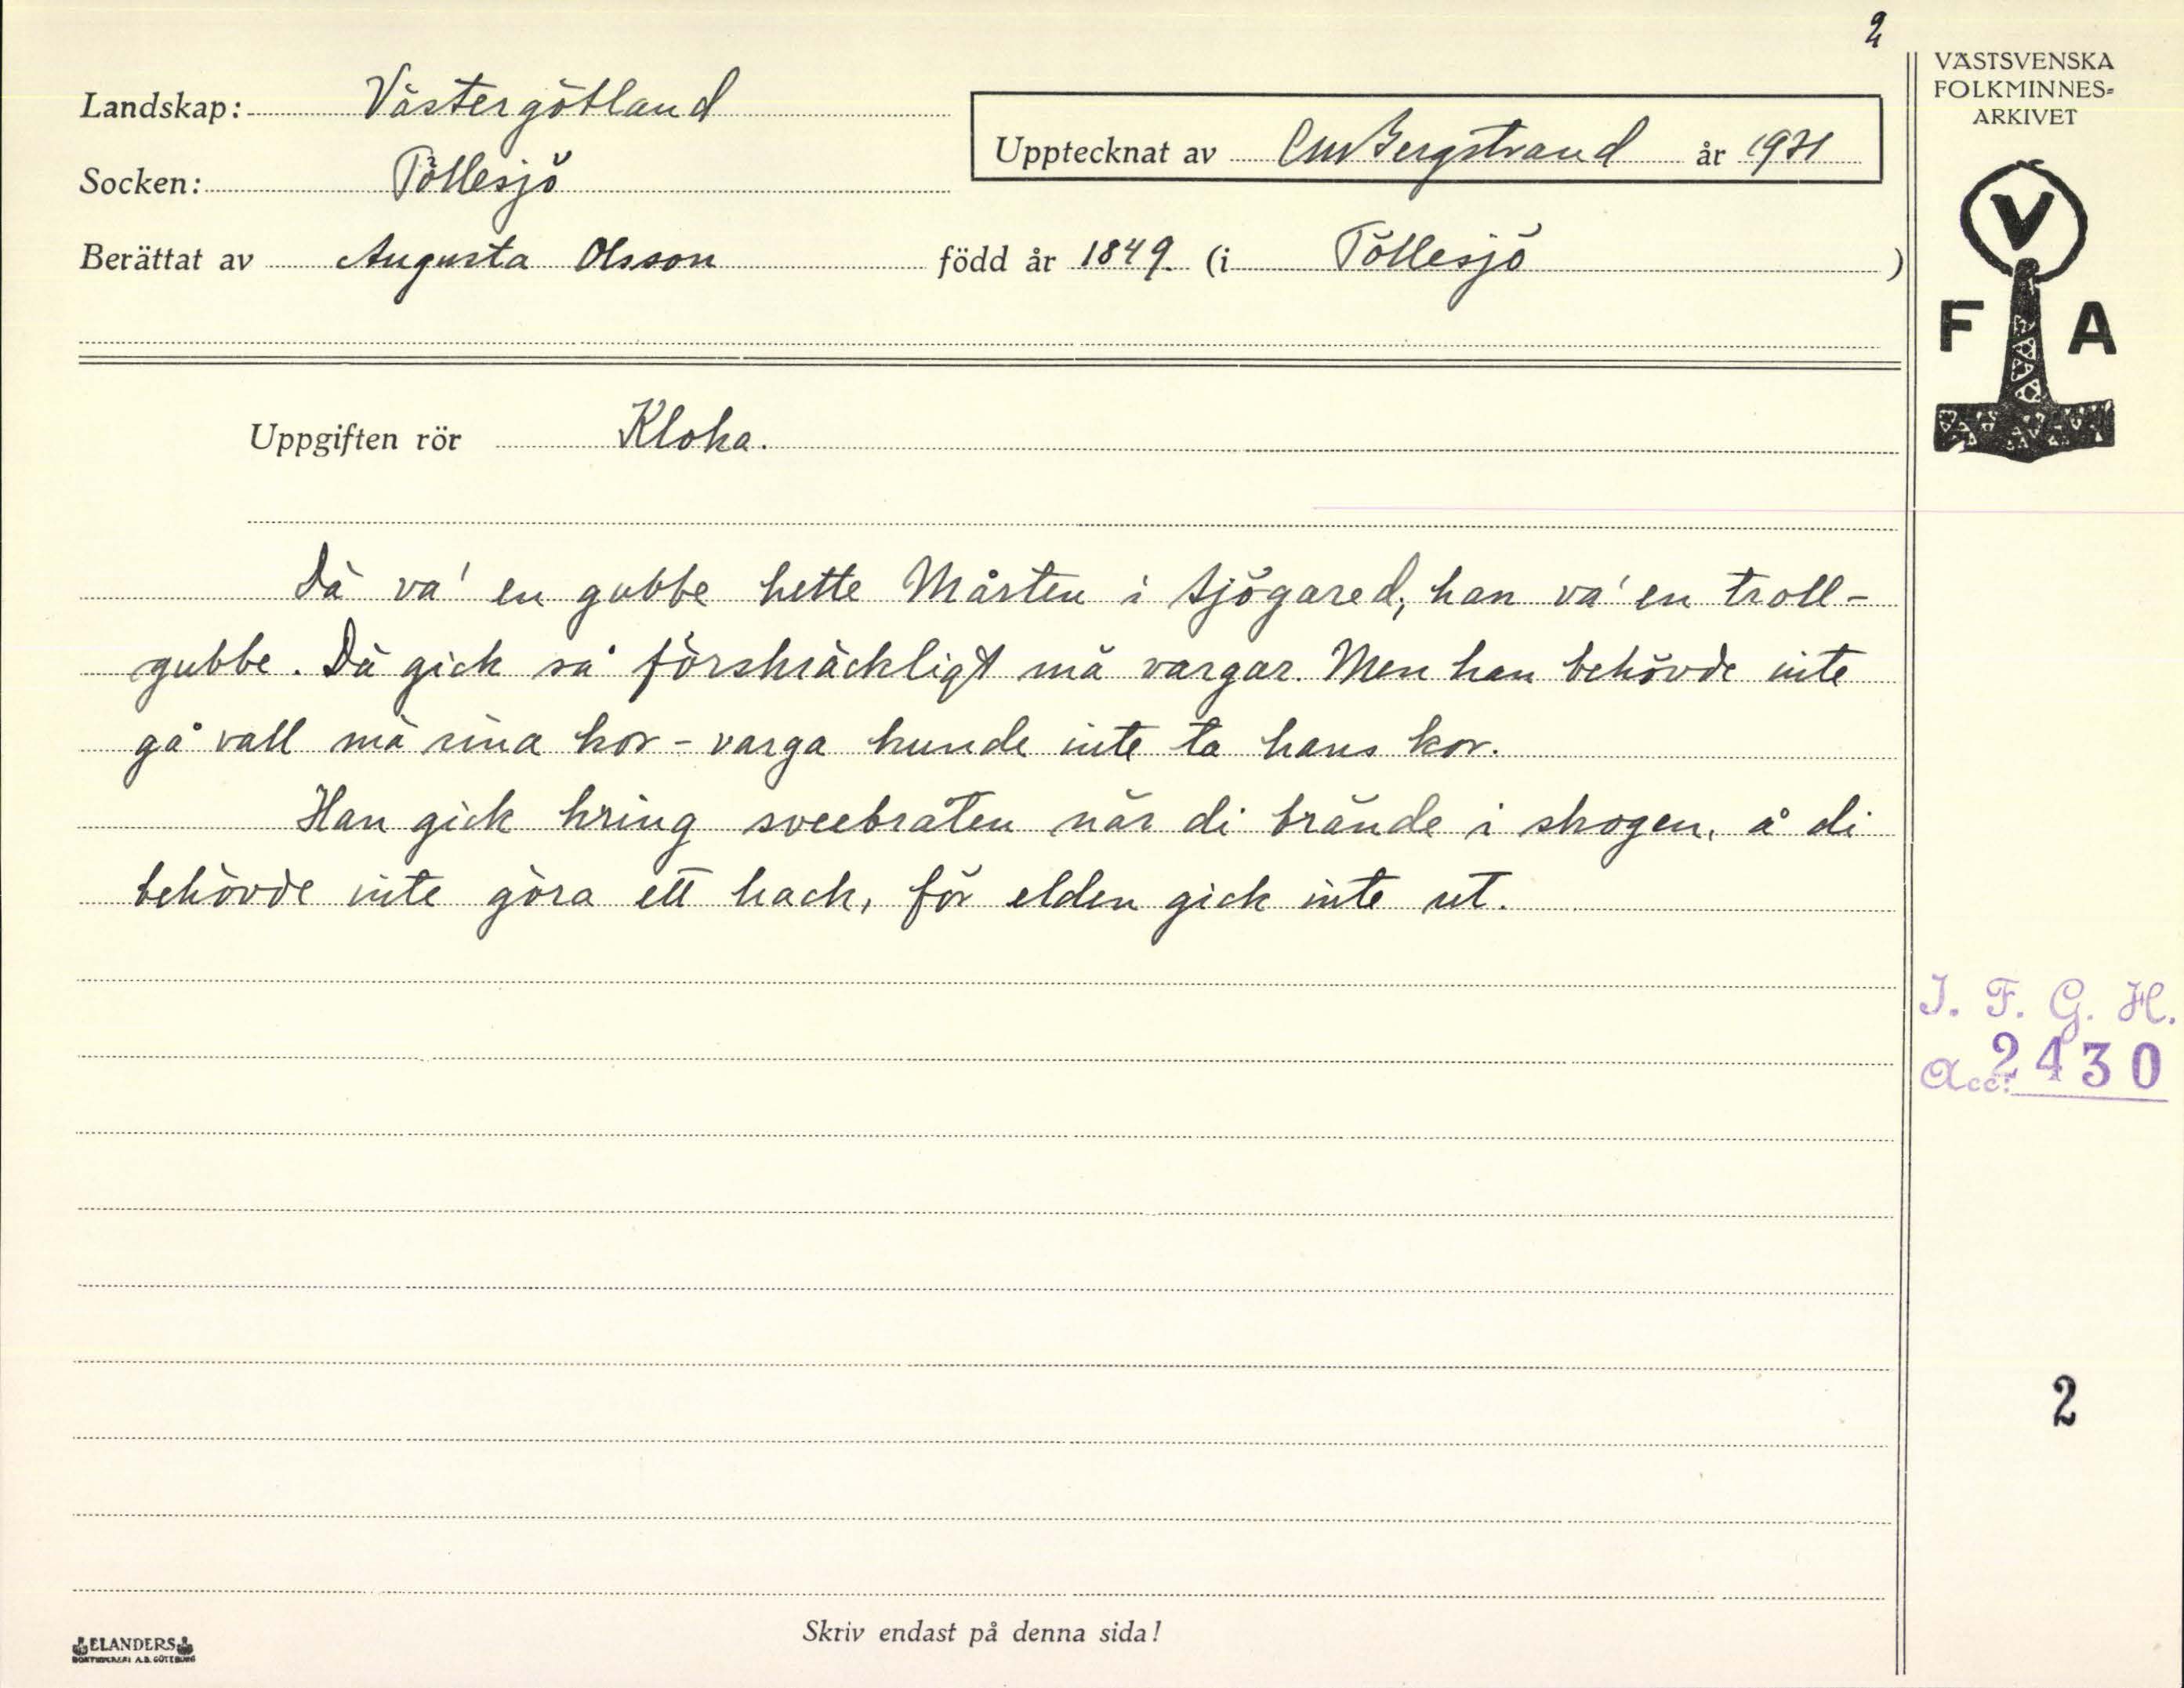 2
VÄSTSVENSKA
FOLKMINNES-
ARKIVET
Landskap: Västergötland
Upptecknat av C.M. Bergstrand år 1931
Socken: Töllesjö
Berättat av Augusta Olsson född år 1849. (i Töllesjö )
V
F A
Uppgiften rör Kloka.
Dä va' en gubbe hette Mårten i Sjögared, han va' en troll-
gubbe. Dä gick så förskräckligt mä vargar. Men han behövde inte
gå vall mä sina kor - varga kunde inte ta hans kor.
Han gick kring sveebråten när di brände i skogen, å di
behövde inte göra ett hack, för elden gick inte ut.
I. F. G. H.
Acc: 2430
2
Skriv endast på denna sida!
ELANDERS
BOKTRYCKERI A.B. GÖTEBORG